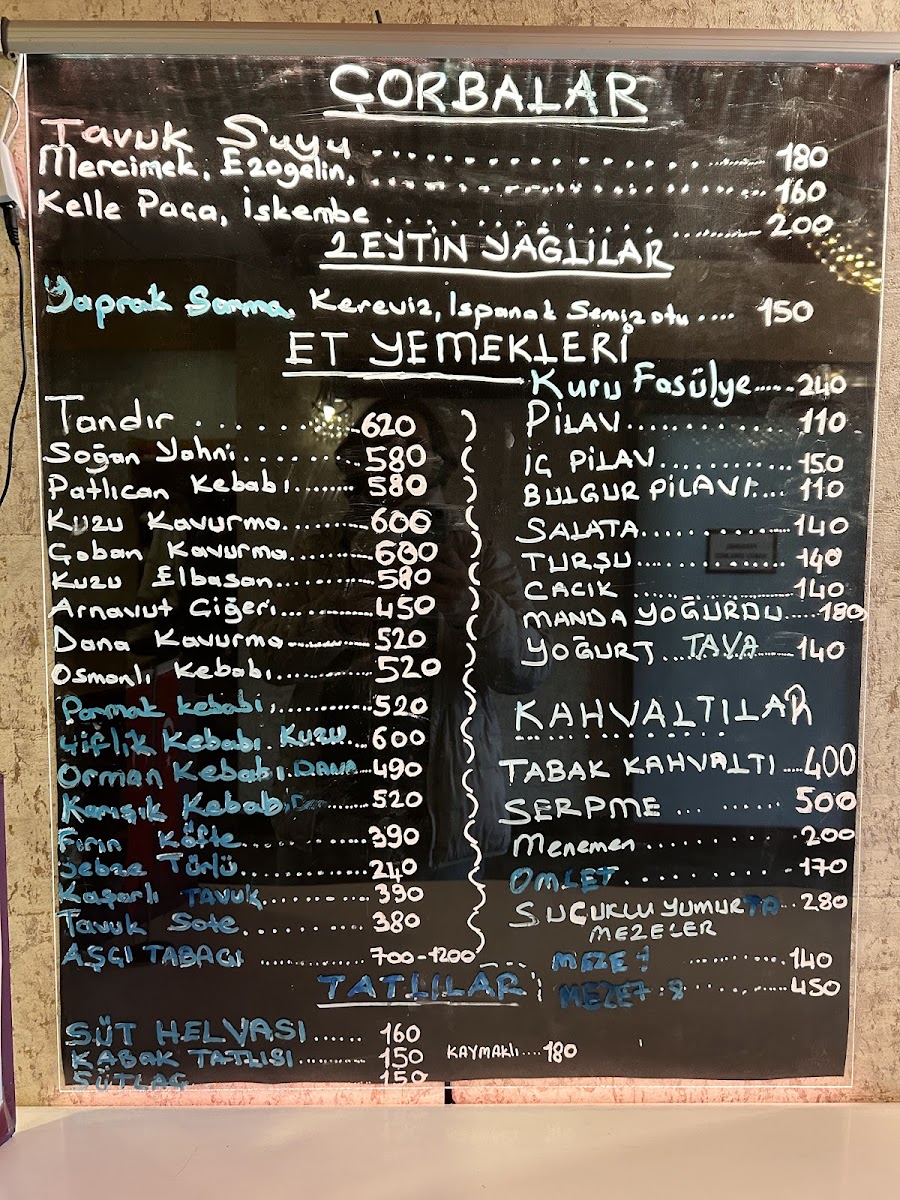 ÇORBALAR
Tavuk Suyu .................. 180
Mercimek, Ezogelin, .................. 160
Kelle Paça, İşkembe .................. 200
ZEYTİN YAĞLILAR
Yaprak Sarma, Kereviz, Ispanak Semizotu .... 150
ET YEMEKLERİ
Tandır ........ 620
Soğan Yahni ......... 580
Patlıcan Kebabı ....... 580
Kuzu Kavurma ........ 600
Çoban Kavurma ........ 600
Kuzu Elbasan ......... 580
Arnavut Ciğeri ........ 450
Dana Kavurma ......... 520
Osmanlı Kebabı ......... 520
Parmak Kebabı ......... 520
Çiftlik Kebabı. Kuzu ... 600
Orman Kebabı. DANA ... 490
Karışık Kebabı ...... 520
Fırın Köfte ......... 390
Sebze Türlü ......... 240
Kaşarlı TAVUK ......... 390
Tavuk Sote ......... 380
AŞÇI TABAĞI ......... 700-1200
Kuru Fasülye ..... 240
PİLAV ............ 110
İÇ PİLAV ........... 150
BULGUR PİLAVI .... 110
SALATA ............ 140
TURŞU ............ 140
CACIK ............ 140
MANDA YOĞURDU .... 180
YOĞURT TAVA ...... 140
KAHVALTILAR
TABAK KAHVALTI .... 400
SERPME ... ...... 500
Menemen .......... 200
OMLET .......... 170
SUCUKLU YUMURTA .. 280
MEZELER
MEZE 1 ......... 140
MEZE 7 : 8 ......... 450
TATLILAR
SÜT HELVASI ...... 160
KABAK TATLISI ......... 150 KAYMAKLI .... 180
SÜTLAÇ 150